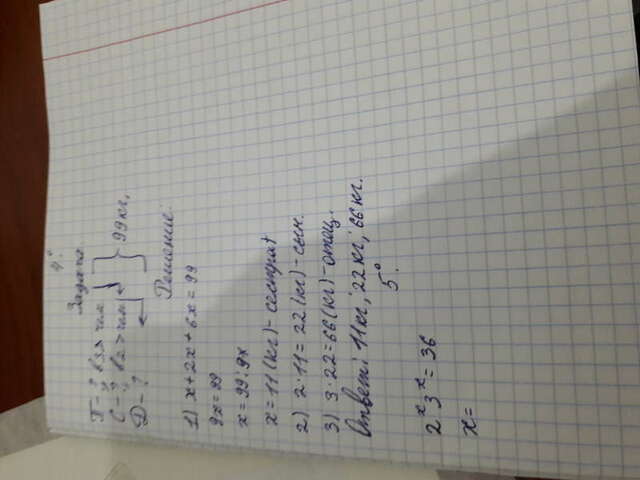 4°.
Задача
П - ?, в 3 > чем
С - ?, в 2 > чем
Д - ?
99 кг.
Решение:
1) x + 2x + 6x = 99
9x = 99
x = 99 : 9x
x = 11 (кг) - сестра
2) 2 · 11 = 22 (кг) - сын.
3) 3 · 22 = 66 (кг) - отец.
Ответ: 11 кг; 22 кг; 66 кг.
5°.
2ˣ3ˣ = 36
x =